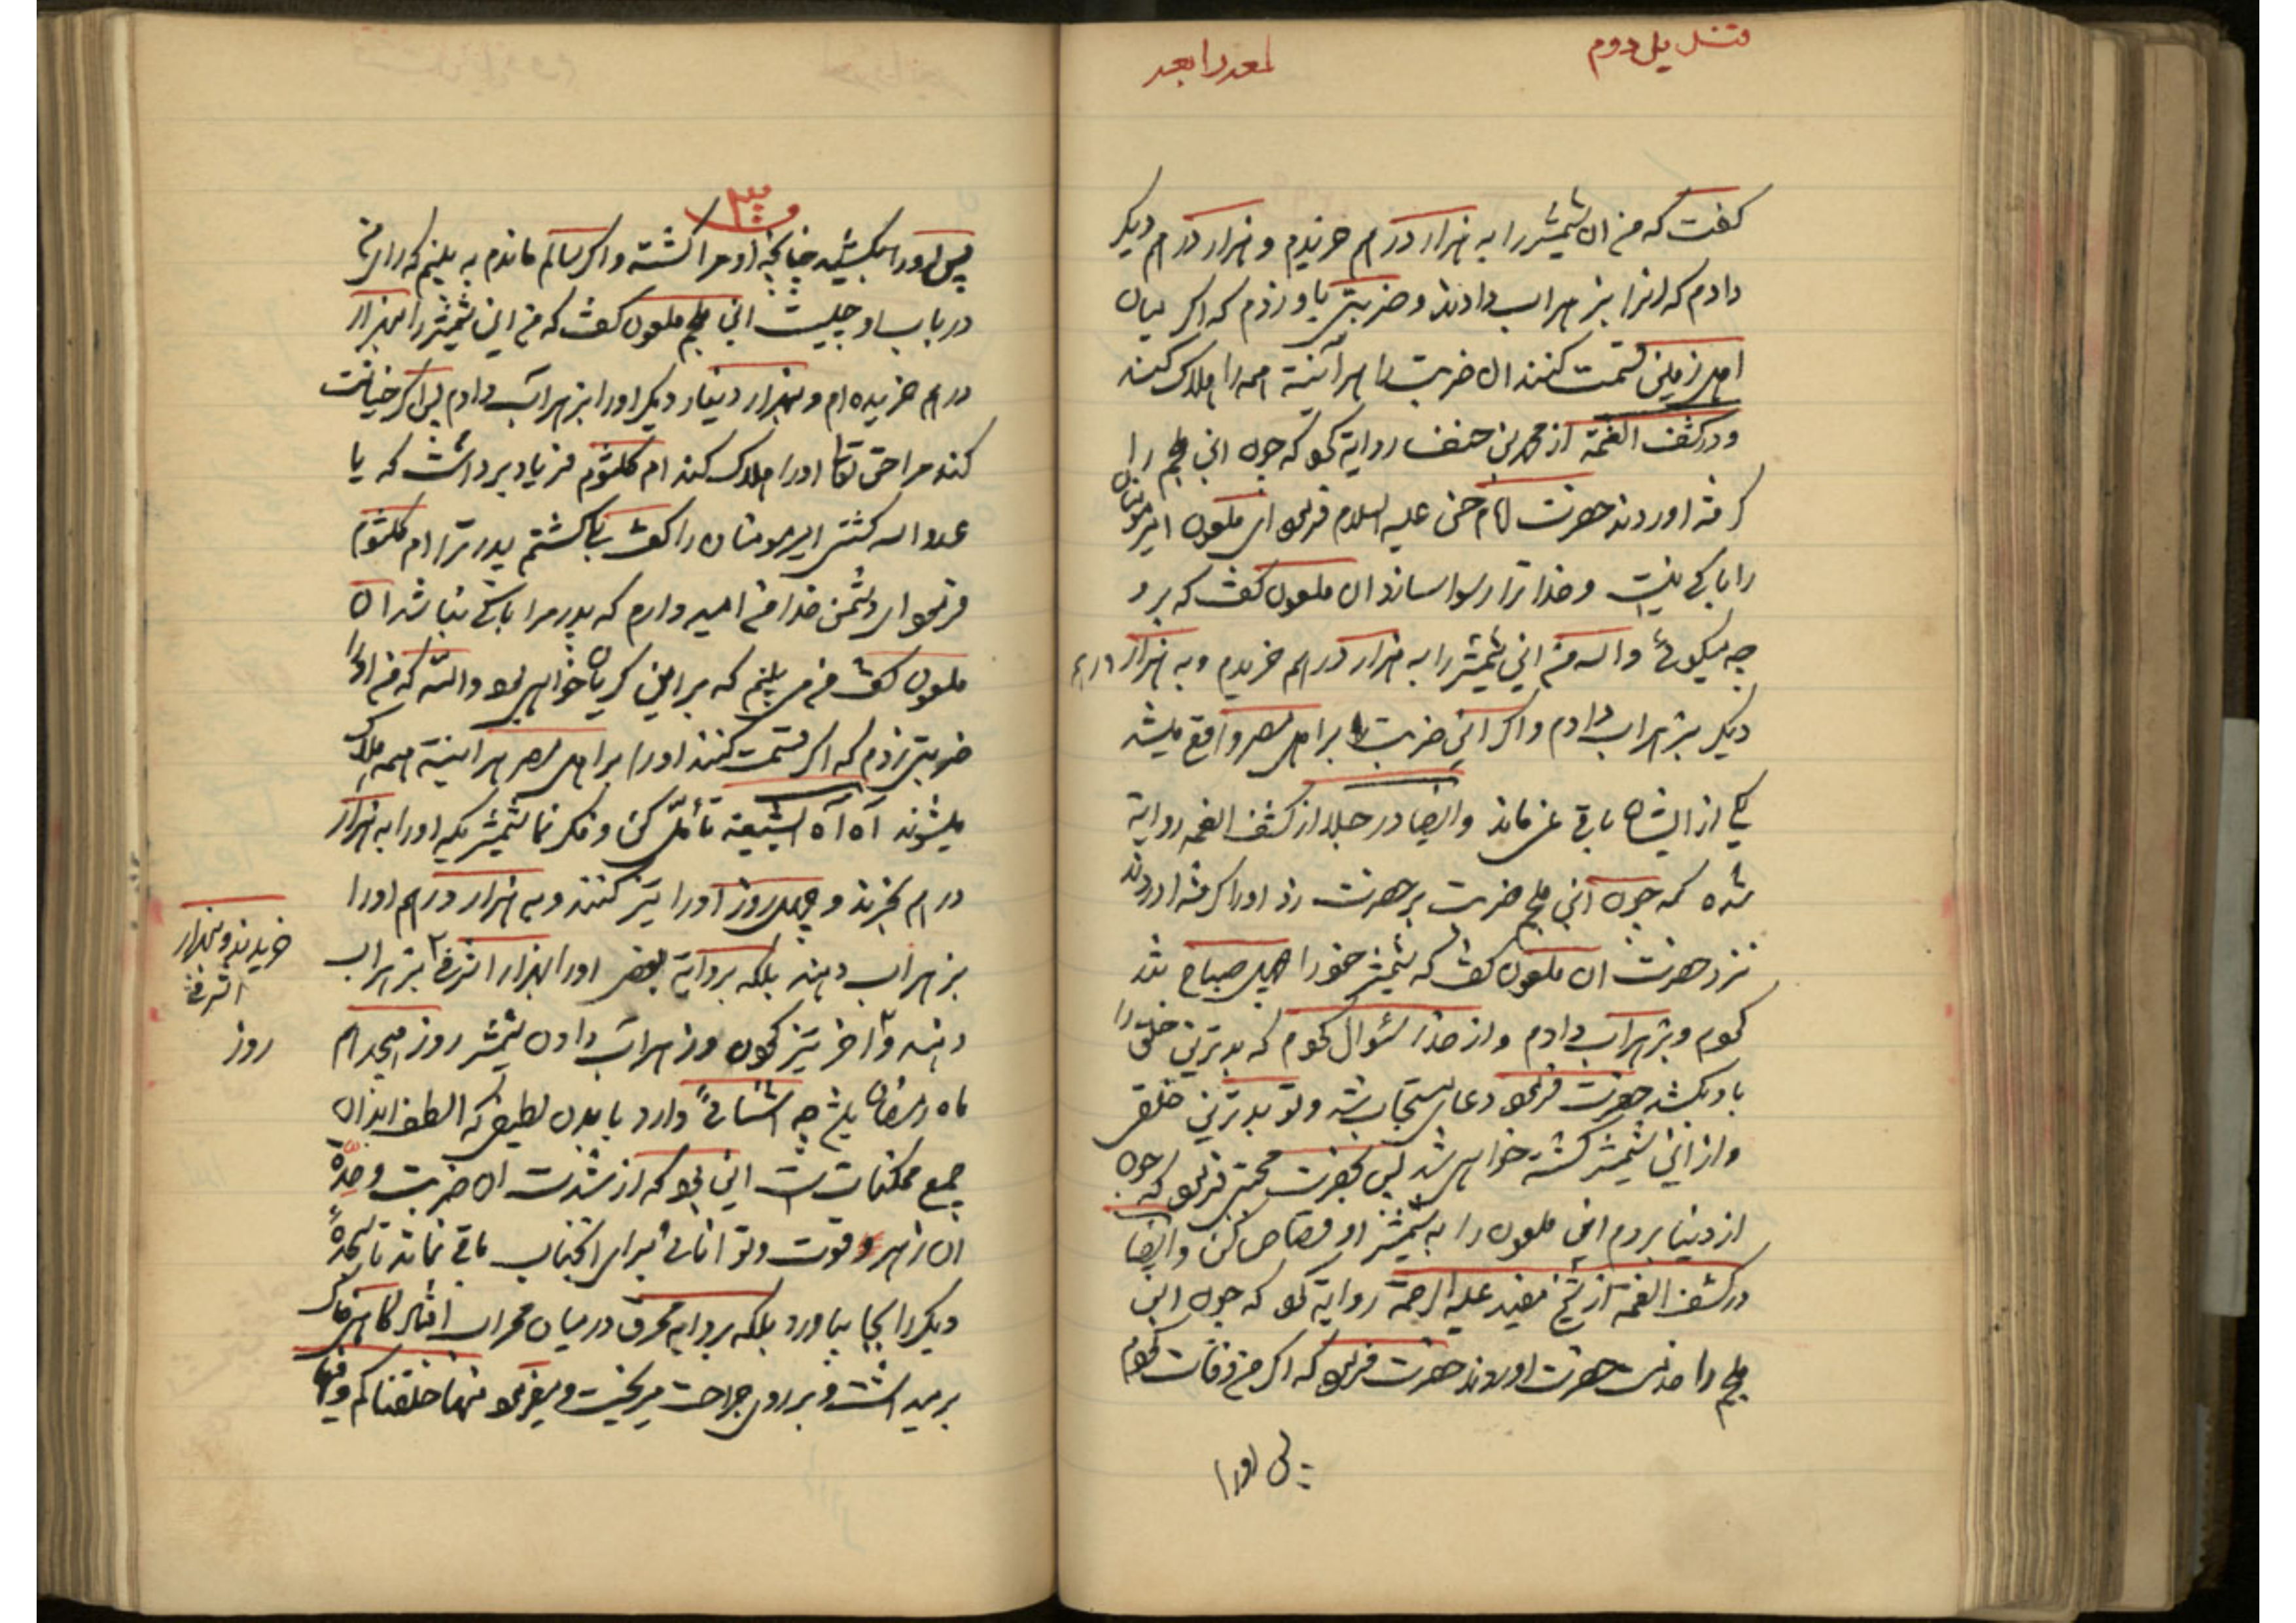 قندیل دوم
لمعه رابعه
کفت که من ان شمشیر را به هزار درهم خریدم و هزار درهم دیکر
دادم که انرا بزهراب دادند و ضربتی باو زدم که اکر میان
اهل زمین قسمت کنند ان ضربت را هرآئینه همه را هلاک کند
و در کشف الغمة از محمد بن حنفیه روایة کو که چون ابن ملجم را
کرفته اوردند حضرت امام حسن علیه السلام فرمو ای ملعون امیرمومنان
را باکی نیست و خدا ترا رسوا سازد ان ملعون کفت که بر و
چه میکوئی والله من این شمشیر را به هزار درهم خریدم و به هزار درهم
دیکر بزهراب دادم و اکر این ضربت بر اهل مصر واقع میشد
یکی از ایشان باقی نمی ماند و ایضا در جلد از کشف الغمه روایة
شده که چون ابن ملجم ضربت بر حضرت زد او را کرفته اوردند
نزد حضرت ان ملعون کفت که شمشیر خود را چهل صباح تند
کردم و بزهراب دادم و از خدا سئوال کردم که بدترین خلق را
باو بکشد حضرت فرمو دعای مستجاب شد و تو بدترین خلقی
و از این شمشیر کشته خواهی شد پس بحضرت مجتبی فرمو که چون
از دنیا بروم این ملعون را به شمشیر او قصاص کن و ایضا
در کشف الغمة از شیخ مفید علیه الرحمة روایة کو که چون ابن
ملجم را خدمت حضرت اوردند حضرت فرمو که اکر من وفات کردم
پس او را
۳۰۰
پس او را بکشید چنانچه او مرا کشته و اکر سالم ماندم به بینم که رای من
در باب او چیست ابن ملجم ملعون کفت که من این شمشیر را بهزار
درهم خریده ام و بهزار دینار دیکر او را بزهراب دادم پس اکر خیانت
کند مرا حق تعالی او را هلاک کند ام کلثوم فریاد برداشت که یا
عدو الله کشتی امیرمومنان را کفت بلکه کشتم پدر ترا ام کلثوم
فرمو ای دشمن خدا من امید وارم که پدر مرا باکی نباشد ان
ملعون کفت من می بینم که بر این کریان خواهی بود والله که من او را
ضربتی زدم که اکر قسمت کنند او را بر اهل مصر هرآینه همه هلاک
میشوند آه آه ایشیعه تأمل کن و فکر نما شمشیریکه او را به هزار
درهم بخرند و چهل روز او را تیز کنند و به هزار درهم او را
بزهراب دهند بلکه بروایة بعضی او را بهزار اشرفی بزهراب
دهند و اخر تیز کردن و زهراب دادن شمشیر روز هیجدهم
ماه رمضان باشد چه اثنائی دارد با بدن لطیفی که الطف ابدان
جمیع ممکنات است این بو که از شدت ان ضربت و حدة
ان زهر قوت و توانائی برای انجناب باقی نماند تا سجدۀ
دیکر را بجا بیاورد بلکه بروایه محرق در میان محراب افتاد کاهی خاک
برمیداشت و بر روی جراحت میریخت و میفرمو منها خلقناکم و فیها
خریدند و بهزار
اشرفی
روز